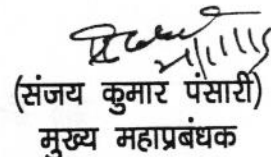 (संजय कुमार पंसारी)
मुख्य महाप्रबंधक